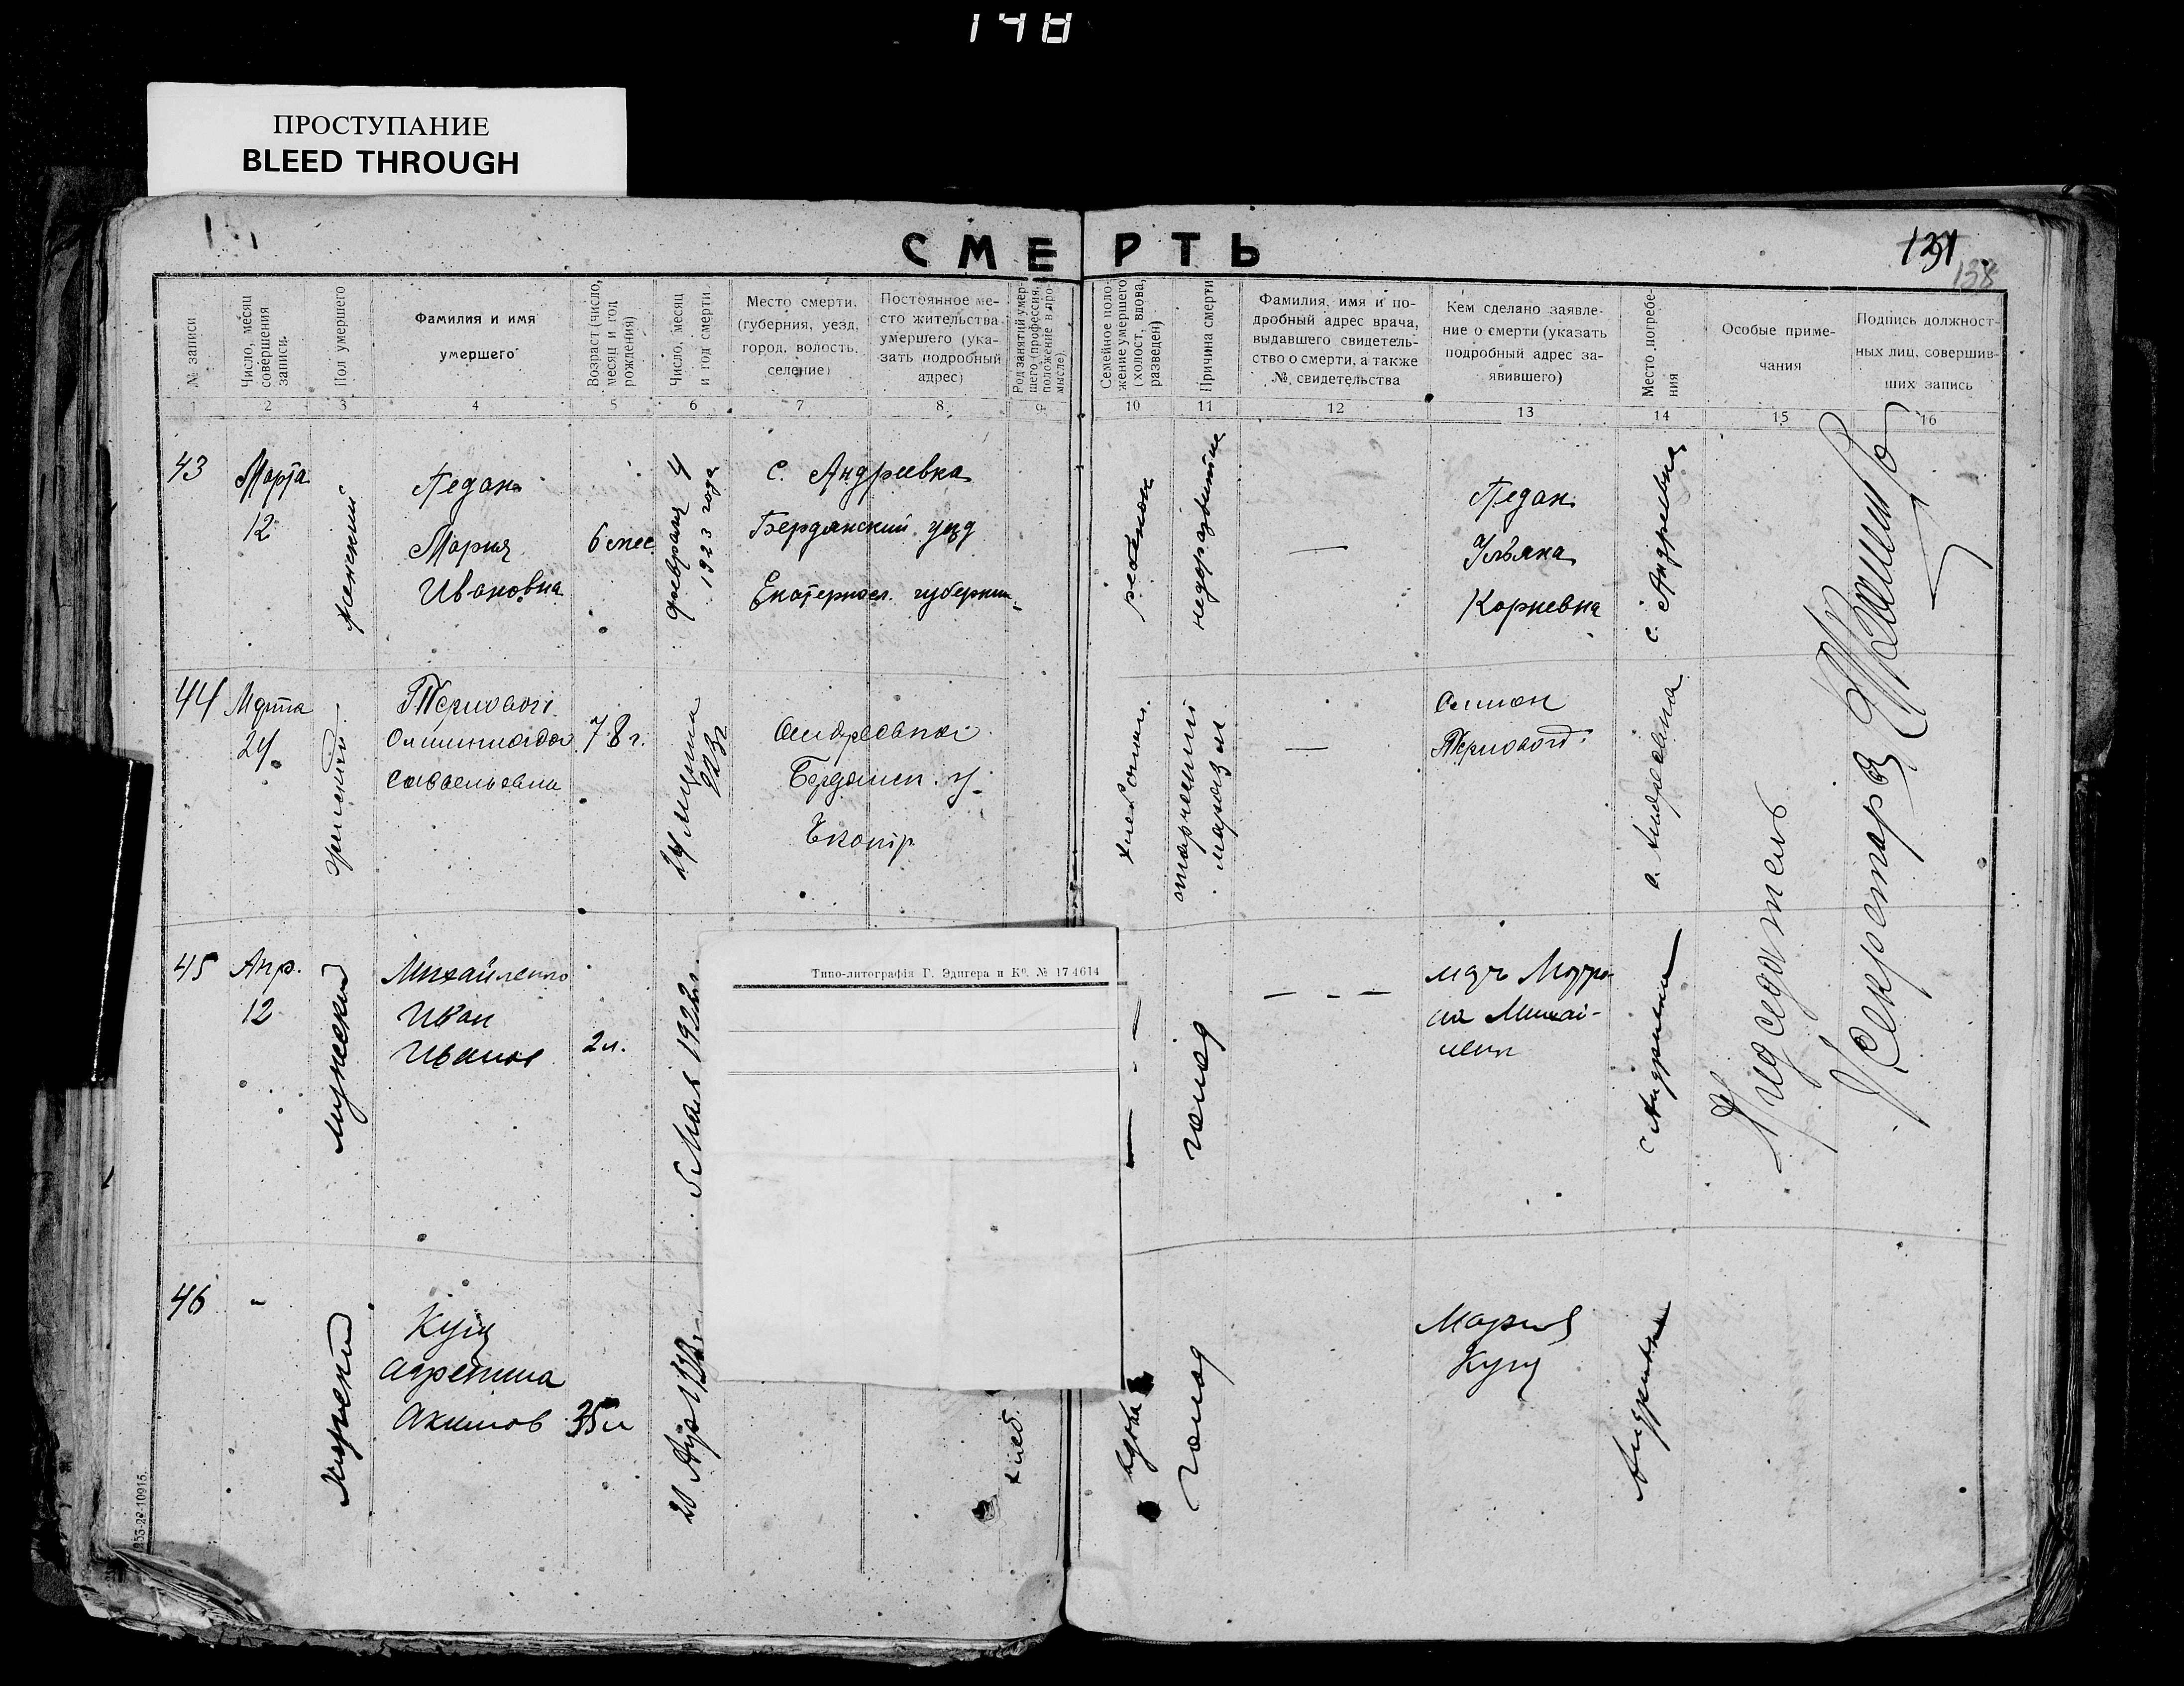 148
ПРОСТУПАНИЕ
BLEED THROUGH
СМЕРТЬ
131
138
№ записи
Число, месяц совершения записи.
Пол умершего
Фамилия и имя умершего
Возраст (число, месяц и год рождения)
Число, месяц и год смерти.
Место смерти. (губерния, уезд, город, волость, селение)
Постоянное место жительства умершего (указать подробный адрес)
Род занятий умершего (профессия, положение в промысле).
Семейное положение умершего (холост, вдова, разведен)
Причина смерти
Фамилия, имя и подробный адрес врача, выдавшего свидетельство о смерти, а также № свидетельства
Кем сделано заявление о смерти (указать подробный адрес заявившего)
Место погребения
Особые примечания
Подпись должностных лиц, совершивших запись
1 2 3 4 5 6 7 8 9 10 11 12 13 14 15 16
43
Марта
12
женский
Педан
Мария
Ивановна
6 мес
февраля 4
1923 года
с. Андреевка
Бердянский уезд
Екатеринсл. губернии
ребенок
недоразвитие
—
Педан
Ульяна
Корневна
с. Андреевка
44
Марта
24
женский
Терновой
78 г.
24 марта
923г
Андреевка
Бердянск. у.
Екатр
старческий
маразм
—
Терновой
с. Андреевка
45
Апр.
12
мужской
Михайленко
Иван
Иванов
2 л.
5 Мая 1922г.
Типо-литографія Г. Эдигера и Кº. № 17 4614
голод
— - —
с Андреевка
46
"
Мужской
Куц
Акимов
35 л
20 Апр 1922г.
хлеб.
голод
Мария
Куц
Андреевка
Председатель
Секретарь